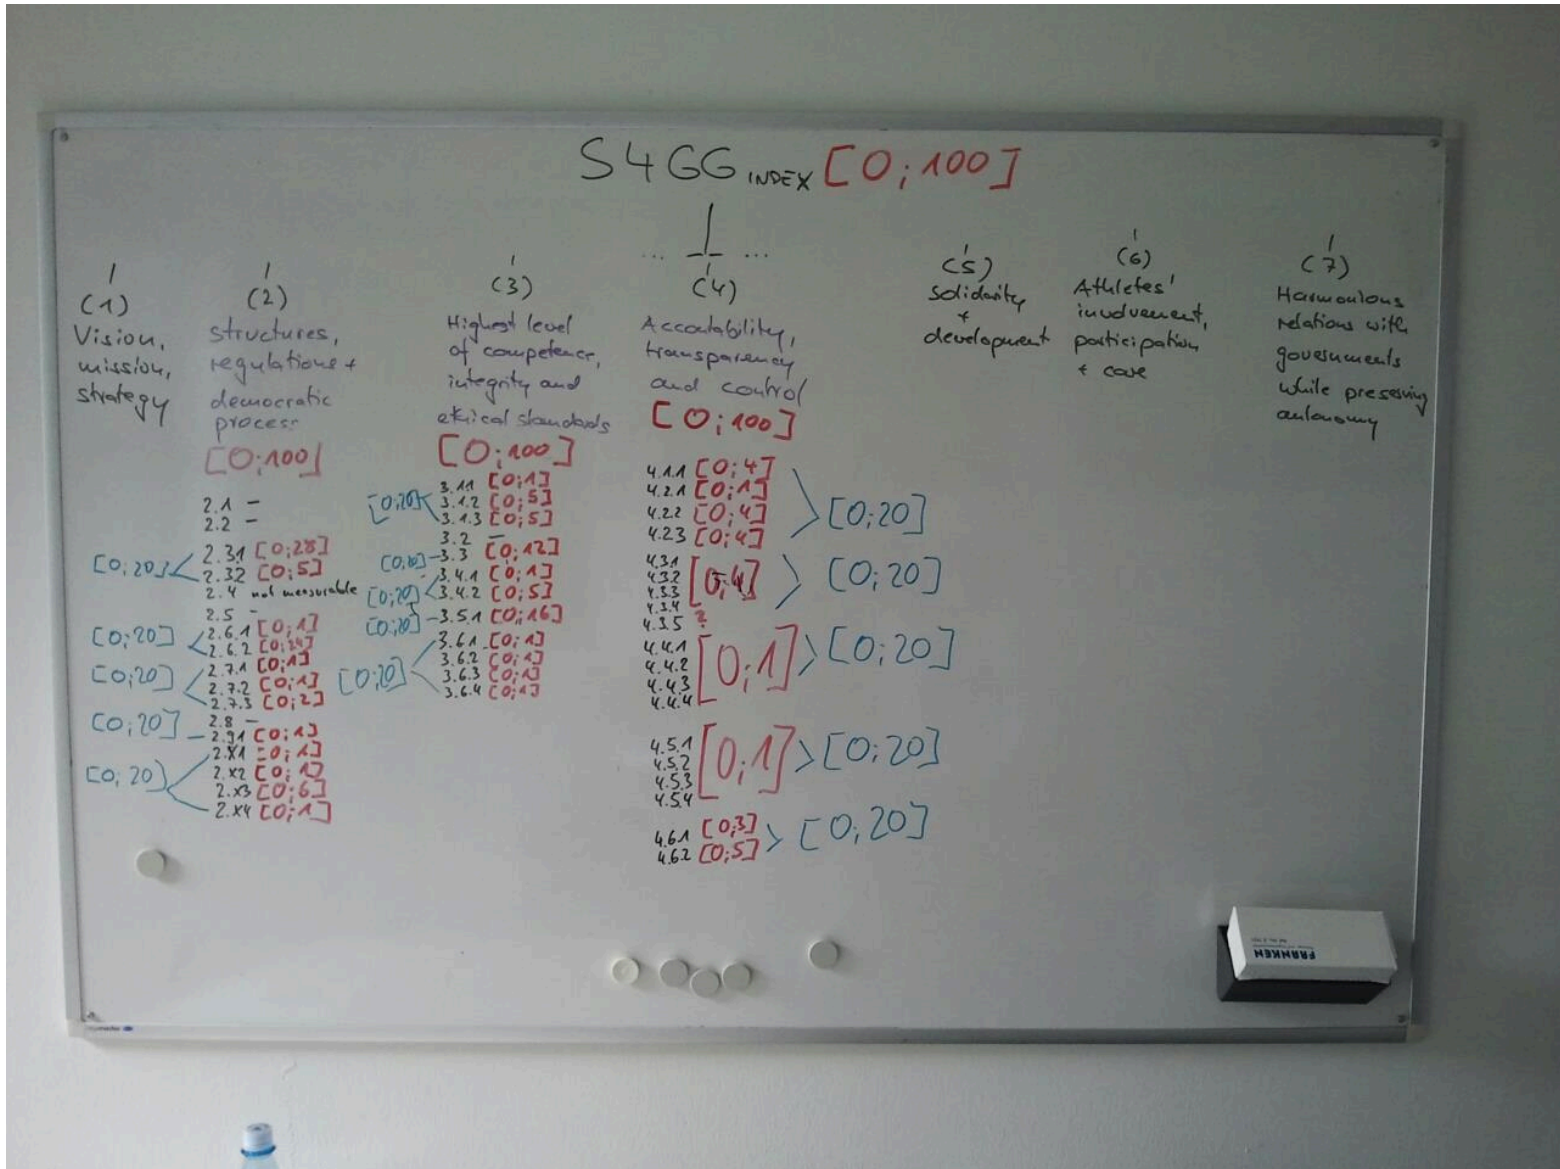 S4GG INDEX [0;100]
... ...
(1)
Vision,
mission,
strategy
(2)
structures,
regulations +
democratic
process
[0;100]
2.1 –
2.2 –
2.31 [0;28]
2.32 [0;5]
[0;20]
2.4 not measurable
2.5 -
2.6.1 [0;1]
2.6.2 [0;24]
[0;20]
2.7.1 [0;1]
2.7.2 [0;1]
2.7.3 [0;2]
[0;20]
2.8 –
2.91 [0;1]
[0;20]
2.X1 [0;1]
2.X2 [0;1]
2.X3 [0;6]
2.X4 [0;1]
[0;20]
(3)
Highest level
of competence,
integrity and
ethical standards
[0;100]
3.11 [0;1]
3.1.2 [0;5]
3.1.3 [0;5]
[0;20]
3.2 –
3.3 [0;12]
[0;20]
3.4.1 [0;1]
3.4.2 [0;5]
[0;20]
3.5.1 [0;16]
[0;20]
3.6.1 [0;1]
3.6.2 [0;1]
3.6.3 [0;1]
3.6.4 [0;1]
[0;20]
(4)
Accountability,
transparency
and control
[0;100]
4.1.1 [0;4]
4.2.1 [0;1]
4.2.2 [0;4]
4.2.3 [0;4]
[0;20]
4.3.1
4.3.2
4.3.3
4.3.4
4.3.5 ?
[0;20]
4.4.1
4.4.2
4.4.3
4.4.4
[0;1]
[0;20]
4.5.1
4.5.2
4.5.3
4.5.4
[0;1]
[0;20]
4.6.1 [0;3]
4.6.2 [0;5]
[0;20]
(5)
Solidarity
+
development
(6)
Athletes'
involvement,
participation
+ care
(7)
Harmonious
relations with
governments
while preserving
autonomy
FRANKEN